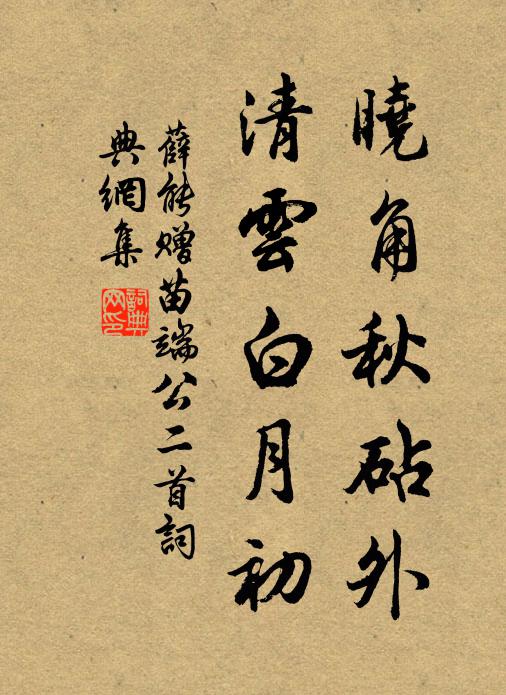 曉角秋砧外
清雲白月初
薛能贈苗端公二首詞
典網集
詞典
网印